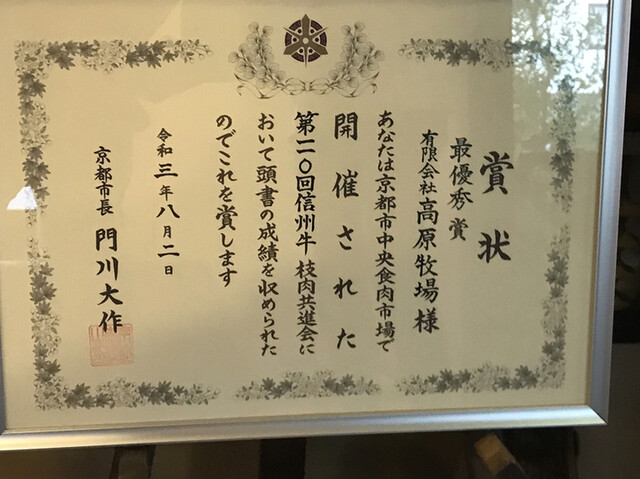 賞状
最優秀賞
有限会社 高原牧場様
あなたは京都市中央食肉市場で
開催された
第二〇回信州牛枝肉共進会に
おいて頭書の成績を収められた
のでこれを賞します
令和三年八月二日
京都市長 門川大作